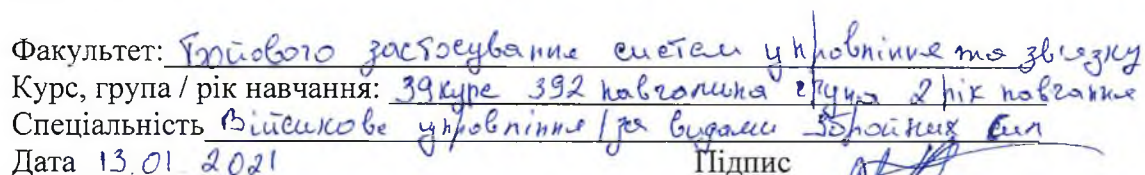 Факультет: Бойового застосування систем управління та зв'язку
Курс, група / рік навчання: 39 курс 392 навчальна група 2 рік навчання
Спеціальність Військове управління / за видами Збройних Сил
Дата 13.01 2021 Підпис